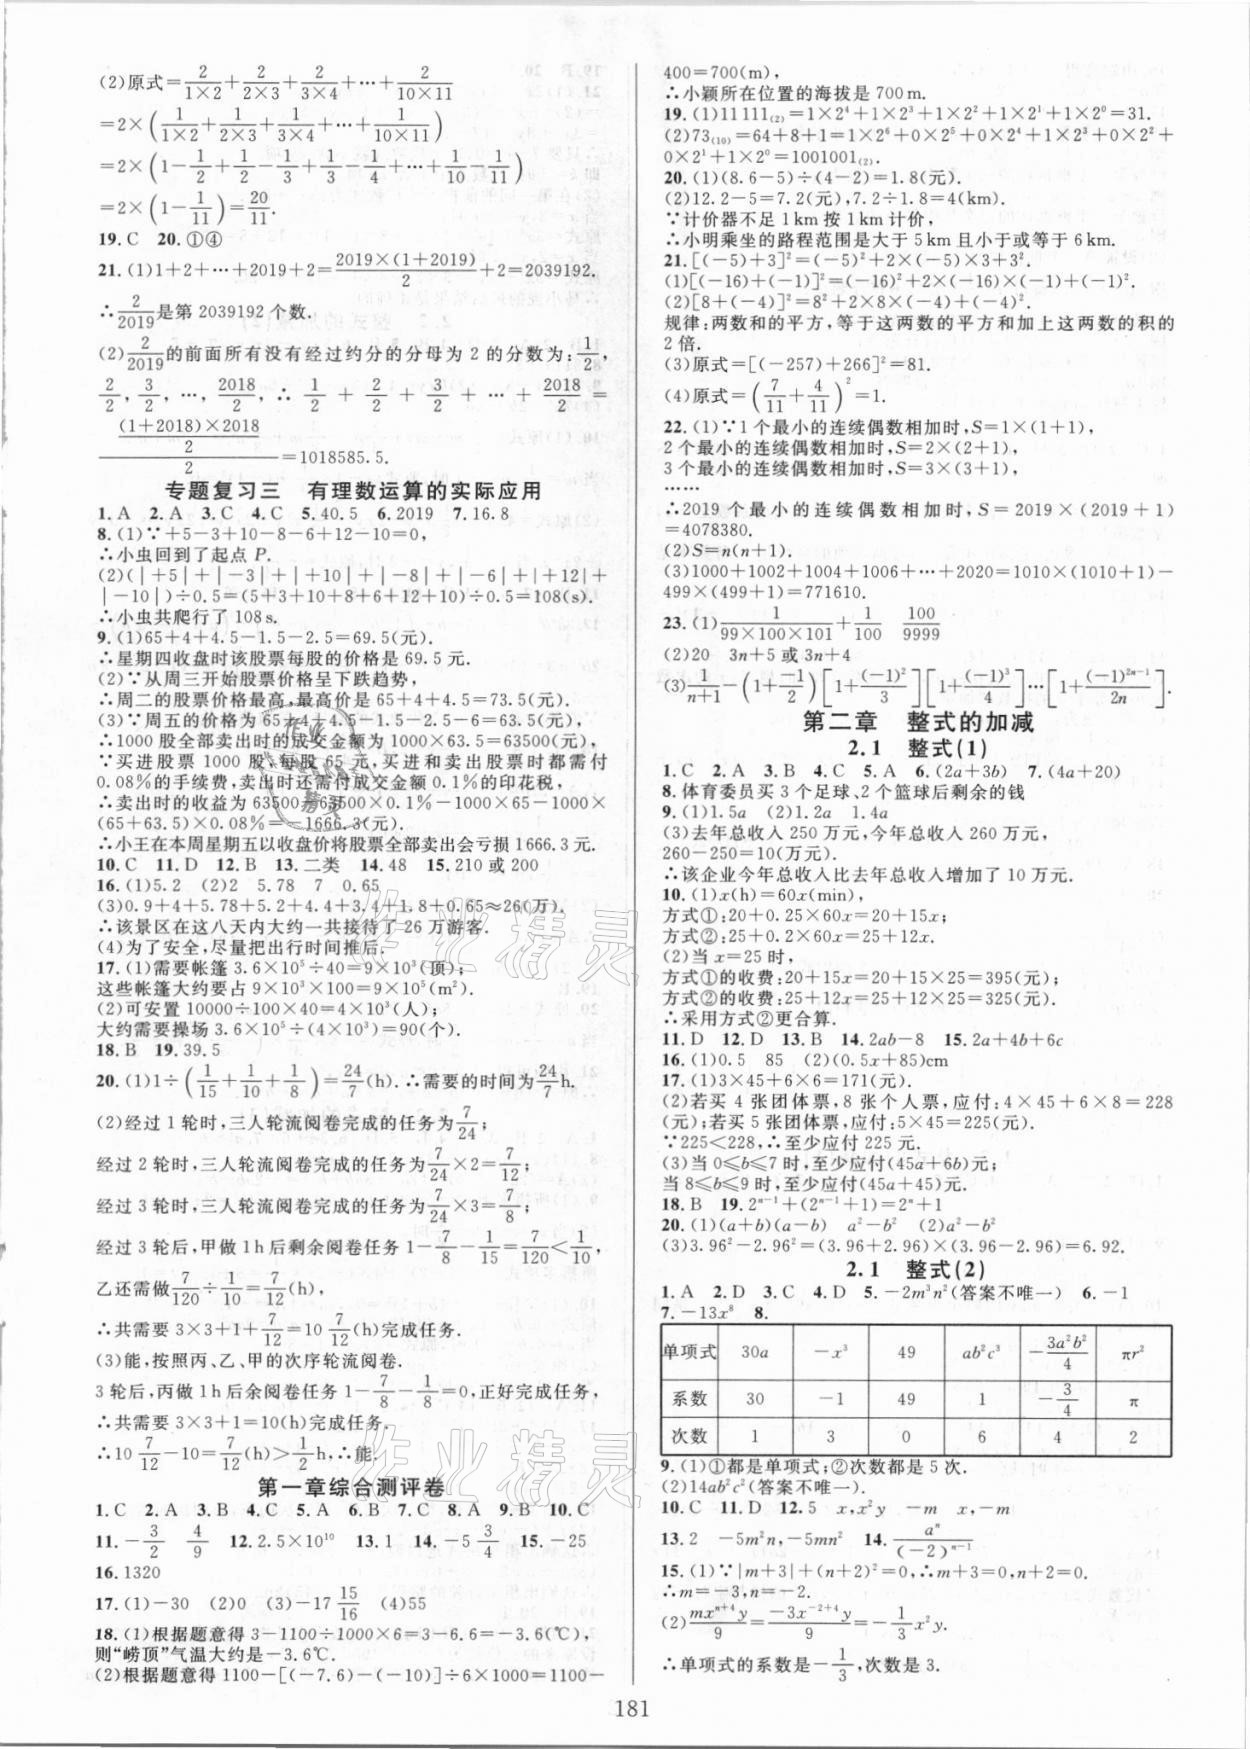 (2)原式=2/(1×2)+2/(2×3)+2/(3×4)+…+2/(10×11)
=2×(1/(1×2)+1/(2×3)+1/(3×4)+…+1/(10×11))
=2×(1-1/2+1/2-1/3+1/3-1/4+…+1/10-1/11)
=2×(1-1/11)=20/11.
19.C 20.①④
21.(1)1+2+…+2019+2=2019×(1+2019)/2+2=2039192.
∴2/2019是第 2039192 个数.
(2)2/2019的前面所有没有经过约分的分母为 2 的分数为:1/2,
2/2,3/2,…,2018/2,∴1/2+2/2+3/2+…+2018/2=
((1+2018)×2018/2)/2=1018585.5.
专题复习三 有理数运算的实际应用
1.A 2.A 3.C 4.C 5.40.5 6.2019 7.16.8
8.(1)∵+5-3+10-8-6+12-10=0,
∴小虫回到了起点 P.
(2)(|+5|+|-3|+|+10|+|-8|+|-6|+|+12|+
|-10|)÷0.5=(5+3+10+8+6+12+10)÷0.5=108(s).
∴小虫共爬行了 108 s.
9.(1)65+4+4.5-1.5-2.5=69.5(元).
∴星期四收盘时该股票每股的价格是 69.5 元.
(2)∵从周三开始股票价格呈下跌趋势,
∴周二的股票价格最高,最高价是 65+4+4.5=73.5(元).
(3)∵周五的价格为 65+4+4.5-1.5-2.5-6=63.5(元),
∴1000 股全部卖出时的成交金额为 1000×63.5=63500(元),
∵买进股票 1000 股,每股 65 元,买进和卖出股票时都需付
0.08%的手续费,卖出时还需付成交金额 0.1%的印花税,
∴卖出时的收益为 63500-63500×0.1%-1000×65-1000×
(65+63.5)×0.08%=-1666.3(元).
∴小王在本周星期五以收盘价将股票全部卖出会亏损 1666.3 元.
10.C 11.D 12.B 13.二类 14.48 15.210 或 200
16.(1)5.2 (2)2 5.78 7 0.65
(3)0.9+4+5.78+5.2+4+3.4+1.8+0.65≈26(万).
∴该景区在这八天内大约一共接待了 26 万游客.
(4)为了安全,尽量把出行时间推后.
17.(1)需要帐篷 3.6×10⁵÷40=9×10³(顶);
这些帐篷大约要占 9×10³×100=9×10⁵(m²).
(2)可安置 10000÷100×40=4×10³(人);
大约需要操场 3.6×10⁵÷(4×10³)=90(个).
18.B 19.39.5
20.(1)1÷(1/15+1/10+1/8)=24/7(h).∴需要的时间为24/7 h.
(2)经过 1 轮时,三人轮流阅卷完成的任务为7/24;
经过 2 轮时,三人轮流阅卷完成的任务为7/24×2=7/12;
经过 3 轮时,三人轮流阅卷完成的任务为7/24×3=7/8;
经过 3 轮后,甲做 1 h 后剩余阅卷任务 1-7/8-1/15=7/120<1/10,
乙还需做7/120÷1/10=7/12(h),
∴共需要 3×3+1+7/12=10 7/12(h)完成任务.
(3)能,按照丙、乙、甲的次序轮流阅卷.
3 轮后,丙做 1 h 后余阅卷任务 1-7/8-1/8=0,正好完成任务,
∴共需要 3×3+1=10(h)完成任务.
∴10 7/12-10=7/12(h)>1/2 h,∴能.
第一章综合测评卷
1.C 2.A 3.B 4.C 5.A 6.B 7.C 8.A 9.B 10.C
11.-3/2 4/9 12.2.5×10¹⁰ 13.1 14.-5 3/4 15.-25
16.1320
17.(1)-30 (2)0 (3)-17 15/16 (4)55
18.(1)根据题意得 3-1100÷1000×6=3-6.6=-3.6(℃),
则“崂顶”气温大约是-3.6℃.
(2)根据题意得 1100-[(-7.6)-(-10)]÷6×1000=1100-
400=700(m),
∴小颖所在位置的海拔是 700 m.
19.(1)11111₍₂₎=1×2⁴+1×2³+1×2²+1×2¹+1×2⁰=31.
(2)73₍₁₀₎=64+8+1=1×2⁶+0×2⁵+0×2⁴+1×2³+0×2²+
0×2¹+1×2⁰=1001001₍₂₎.
20.(1)(8.6-5)÷(4-2)=1.8(元).
(2)12.2-5=7.2(元),7.2÷1.8=4(km).
∵计价器不足 1 km 按 1 km 计价,
∴小明乘坐的路程范围是大于 5 km 且小于或等于 6 km.
21.[(-5)+3]²=(-5)²+2×(-5)×3+3².
(1)[(-16)+(-1)]²=(-16)²+2×(-16)×(-1)+(-1)².
(2)[8+(-4)]²=8²+2×8×(-4)+(-4)².
规律:两数和的平方,等于这两数的平方和加上这两数的积的
2 倍.
(3)原式=[(-257)+266]²=81.
(4)原式=(7/11+4/11)²=1.
22.(1)∵1 个最小的连续偶数相加时,S=1×(1+1),
2 个最小的连续偶数相加时,S=2×(2+1),
3 个最小的连续偶数相加时,S=3×(3+1),
……
∴2019 个最小的连续偶数相加时,S=2019×(2019+1)
=4078380.
(2)S=n(n+1).
(3)1000+1002+1004+1006+…+2020=1010×(1010+1)-
499×(499+1)=771610.
23.(1)1/(99×100×101)+1/100 100/9999
(2)20 3n+5 或 3n+4
(3)1/(n+1)-(1+(-1)/2)[1+(-1)²/3][1+(-1)³/4]…[1+(-1)²ⁿ⁻¹/2n].
第二章 整式的加减
2.1 整式(1)
1.C 2.A 3.B 4.C 5.A 6.(2a+3b) 7.(4a+20)
8.体育委员买 3 个足球、2 个篮球后剩余的钱
9.(1)1.5a (2)1.2a 1.4a
(3)去年总收入 250 万元,今年总收入 260 万元,
260-250=10(万元).
∴该企业今年总收入比去年总收入增加了 10 万元.
10.(1)x(h)=60x(min),
方式①:20+0.25×60x=20+15x;
方式②:25+0.2×60x=25+12x.
(2)当 x=25 时,
方式①的收费:20+15x=20+15×25=395(元);
方式②的收费:25+12x=25+12×25=325(元).
∴采用方式②更合算.
11.D 12.D 13.B 14.2ab-8 15.2a+4b+6c
16.(1)0.5 85 (2)(0.5x+85)cm
17.(1)3×45+6×6=171(元).
(2)若买 4 张团体票,8 张个人票,应付:4×45+6×8=228
(元);若买 5 张团体票,应付:5×45=225(元).
∵225<228,∴至少应付 225 元.
(3)当 0≤b≤7 时,至少应付(45a+6b)元;
当 8≤b≤9 时,至少应付(45a+45)元.
18.B 19.2ⁿ⁻¹+(2ⁿ⁻¹+1)=2ⁿ+1
20.(1)(a+b)(a-b) a²-b² (2)a²-b²
(3)3.96²-2.96²=(3.96+2.96)×(3.96-2.96)=6.92.
2.1 整式(2)
1.A 2.D 3.C 4.D 5.-2m³n²(答案不唯一) 6.-1
7.-13x⁸ 8.
单项式 30a -x³ 49 ab²c³ -3a²b²/4 πr²
系数 30 -1 49 1 -3/4 π
次数 1 3 0 6 4 2
9.(1)①都是单项式;②次数都是 5 次.
(2)14ab²c²(答案不唯一).
10.C 11.D 12.5 x,x²y -m x,-m
13.2 -5m²n,-5mn² 14.aⁿ/(-2)ⁿ⁻¹
15.(1)∵|m+3|+(n+2)²=0,∴m+3=0,n+2=0.
∴m=-3,n=-2.
(2)mxⁿ⁺⁴y/9=-3x⁻²⁺⁴y/9=-1/3x²y.
∴单项式的系数是-1/3,次数是 3.
作业精灵
作业精灵
181